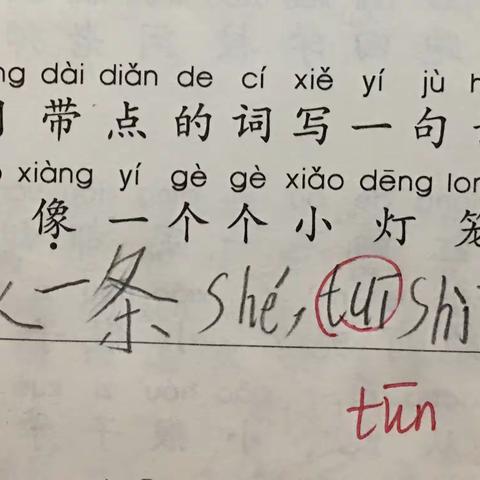 ng dài diǎn de cí xiě yí jù
带点的词写一句
xiàng yí gè gè xiǎo dēng lon
像一个个小灯笼
一条shé,tuīshì
tūn